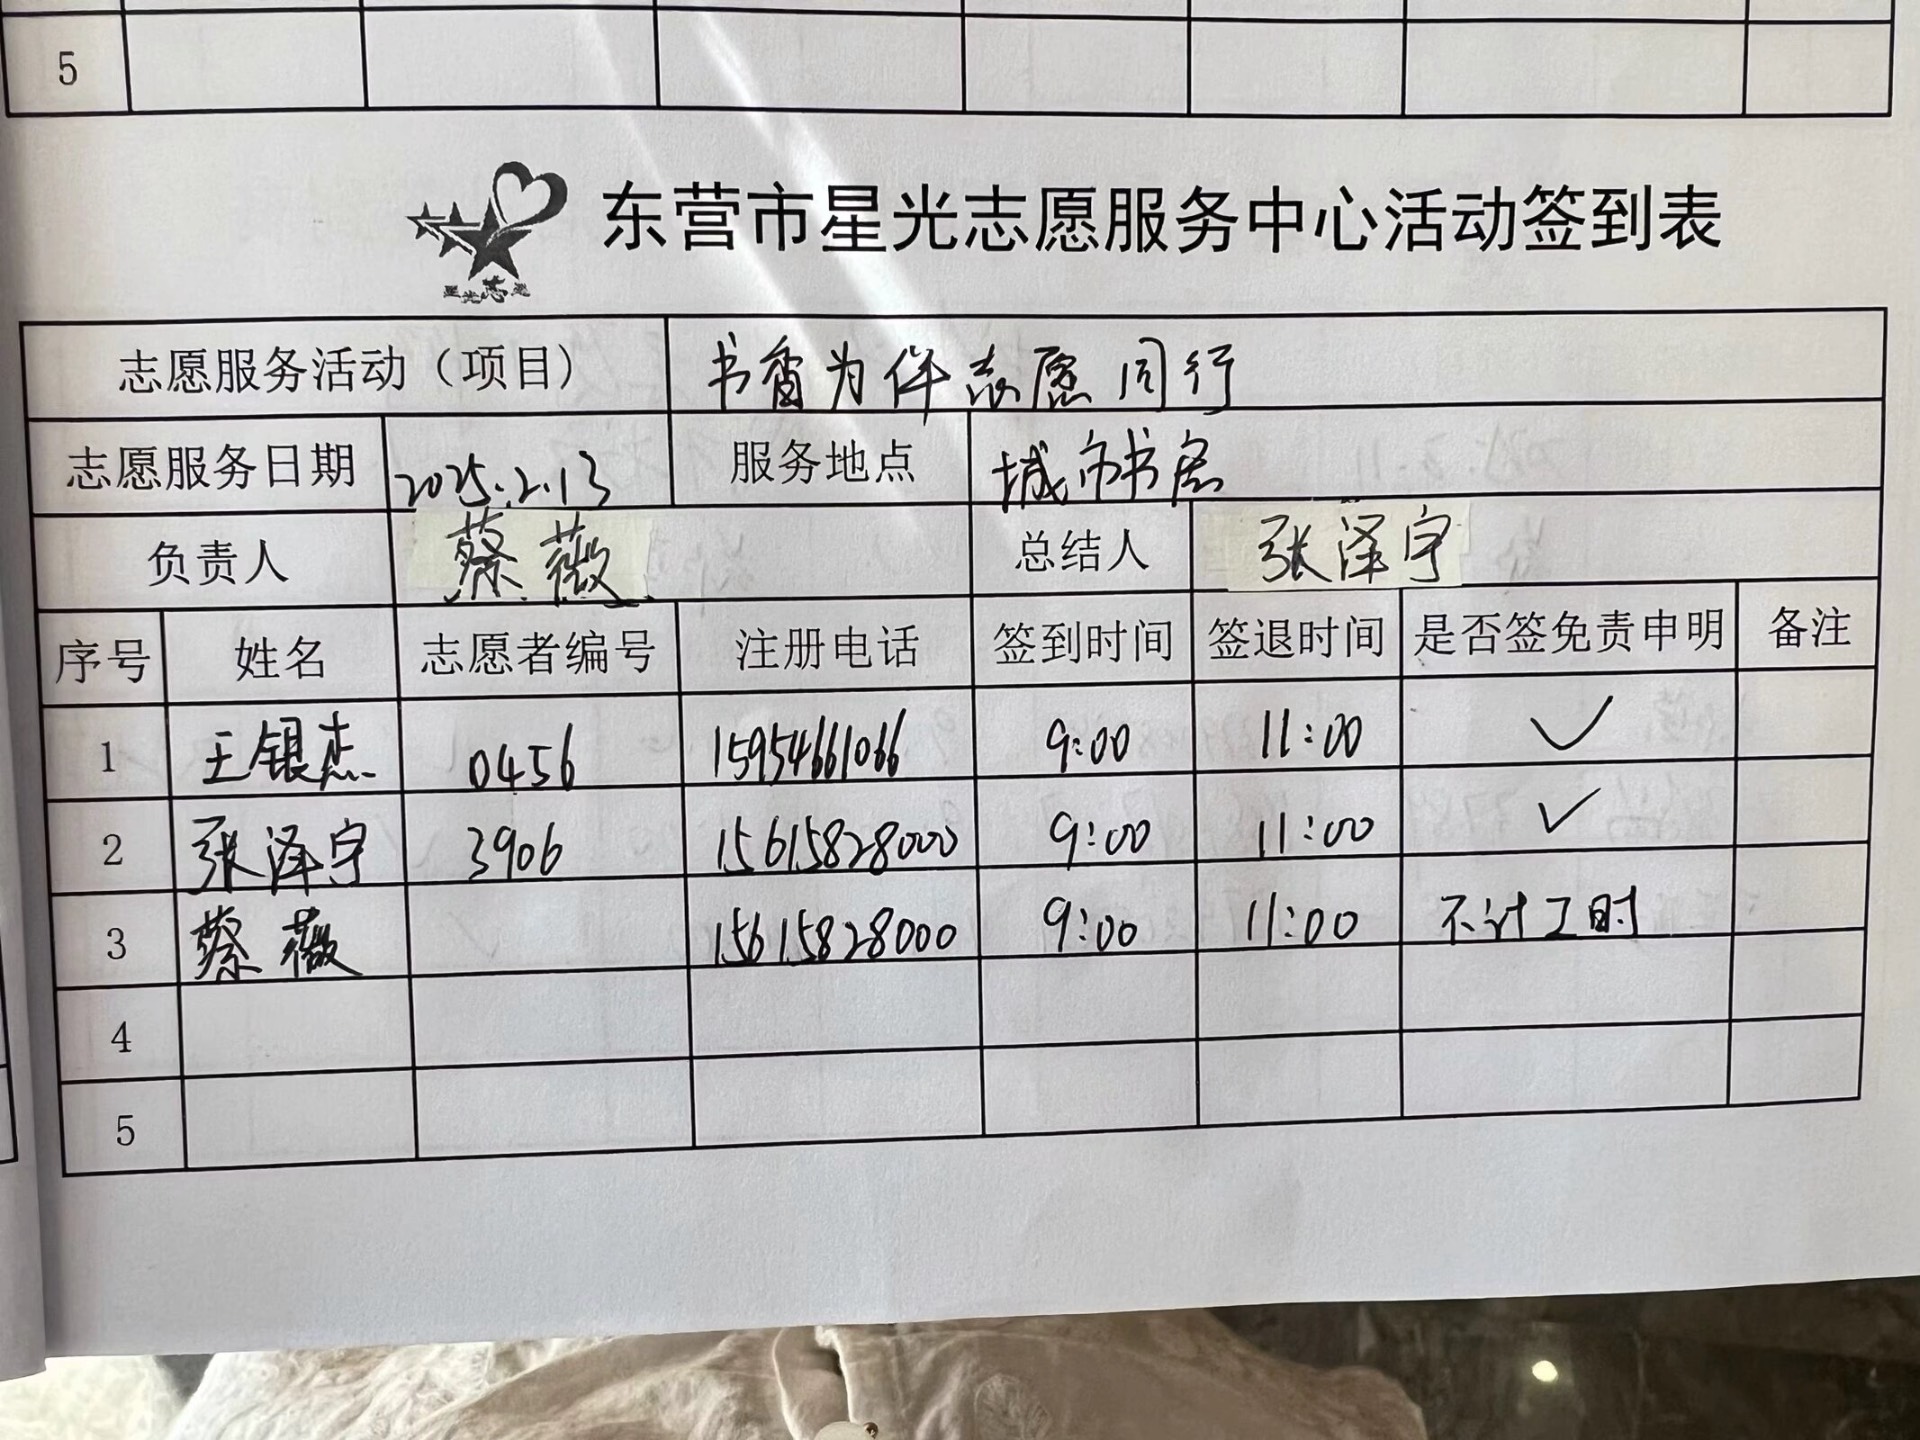 5
东营市星光志愿服务中心活动签到表
星光志愿
志愿服务活动（项目） 书香为伴志愿同行
志愿服务日期 2025.2.13 服务地点 城市书房
负责人 蔡薇 总结人 张泽宇
序号 姓名 志愿者编号 注册电话 签到时间 签退时间 是否签免责申明 备注
1 王银杰 0456 15954661066 9:00 11:00 ✓
2 张泽宇 3906 15615828000 9:00 11:00 ✓
3 蔡薇 15615828000 9:00 11:00 不计工时
4
5